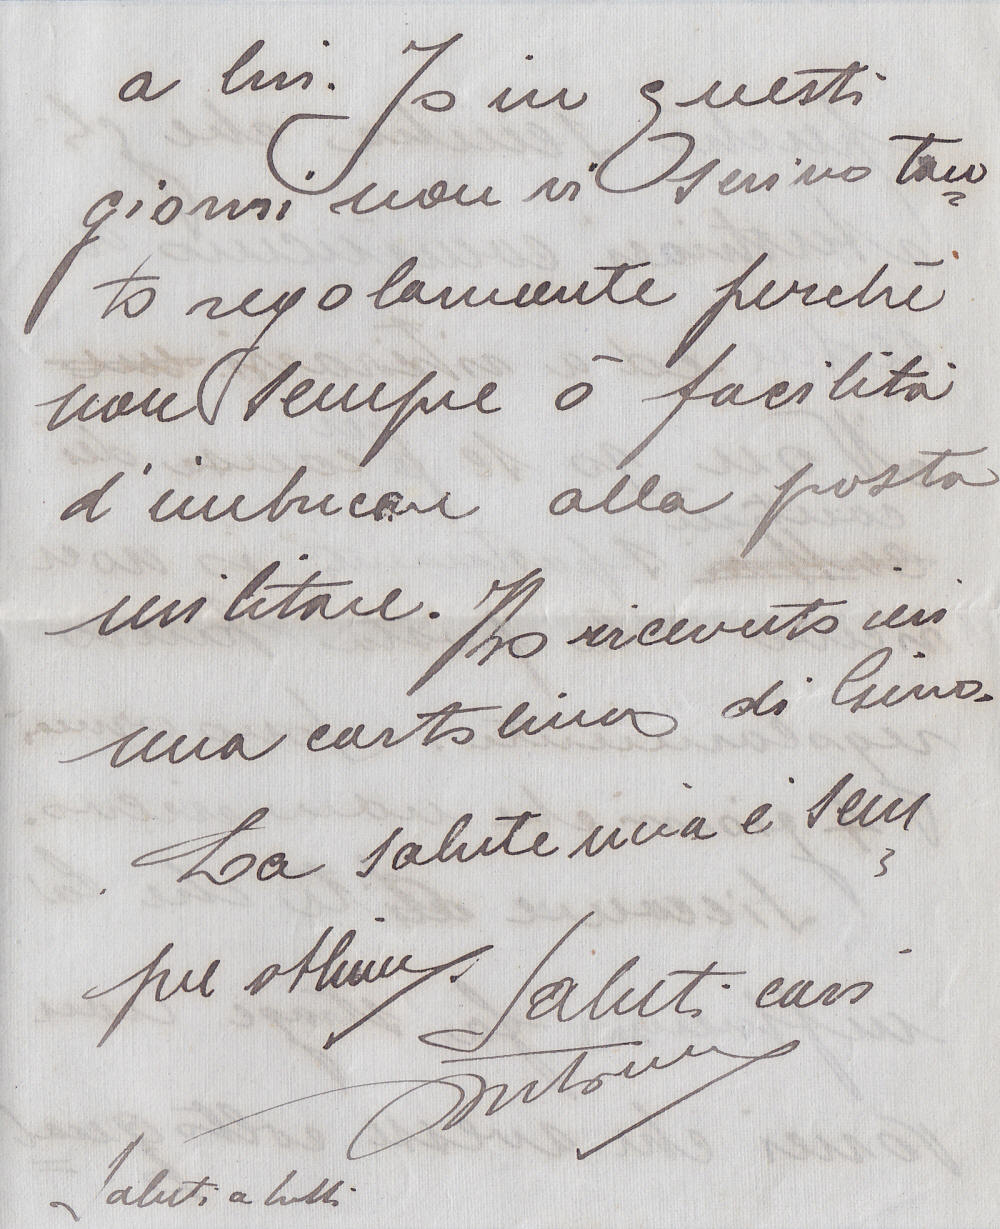 a lui. Io in questi
giorni non vi scrivo tan=
to regolarmente perchè
non sempre ò facilità
d'imbucare alla posta
militare. Ho ricevuto ieri
una cartolina di Gino.
La salute mia è sem=
pre ottima. Saluti cari
Antonio
Saluti a tutti